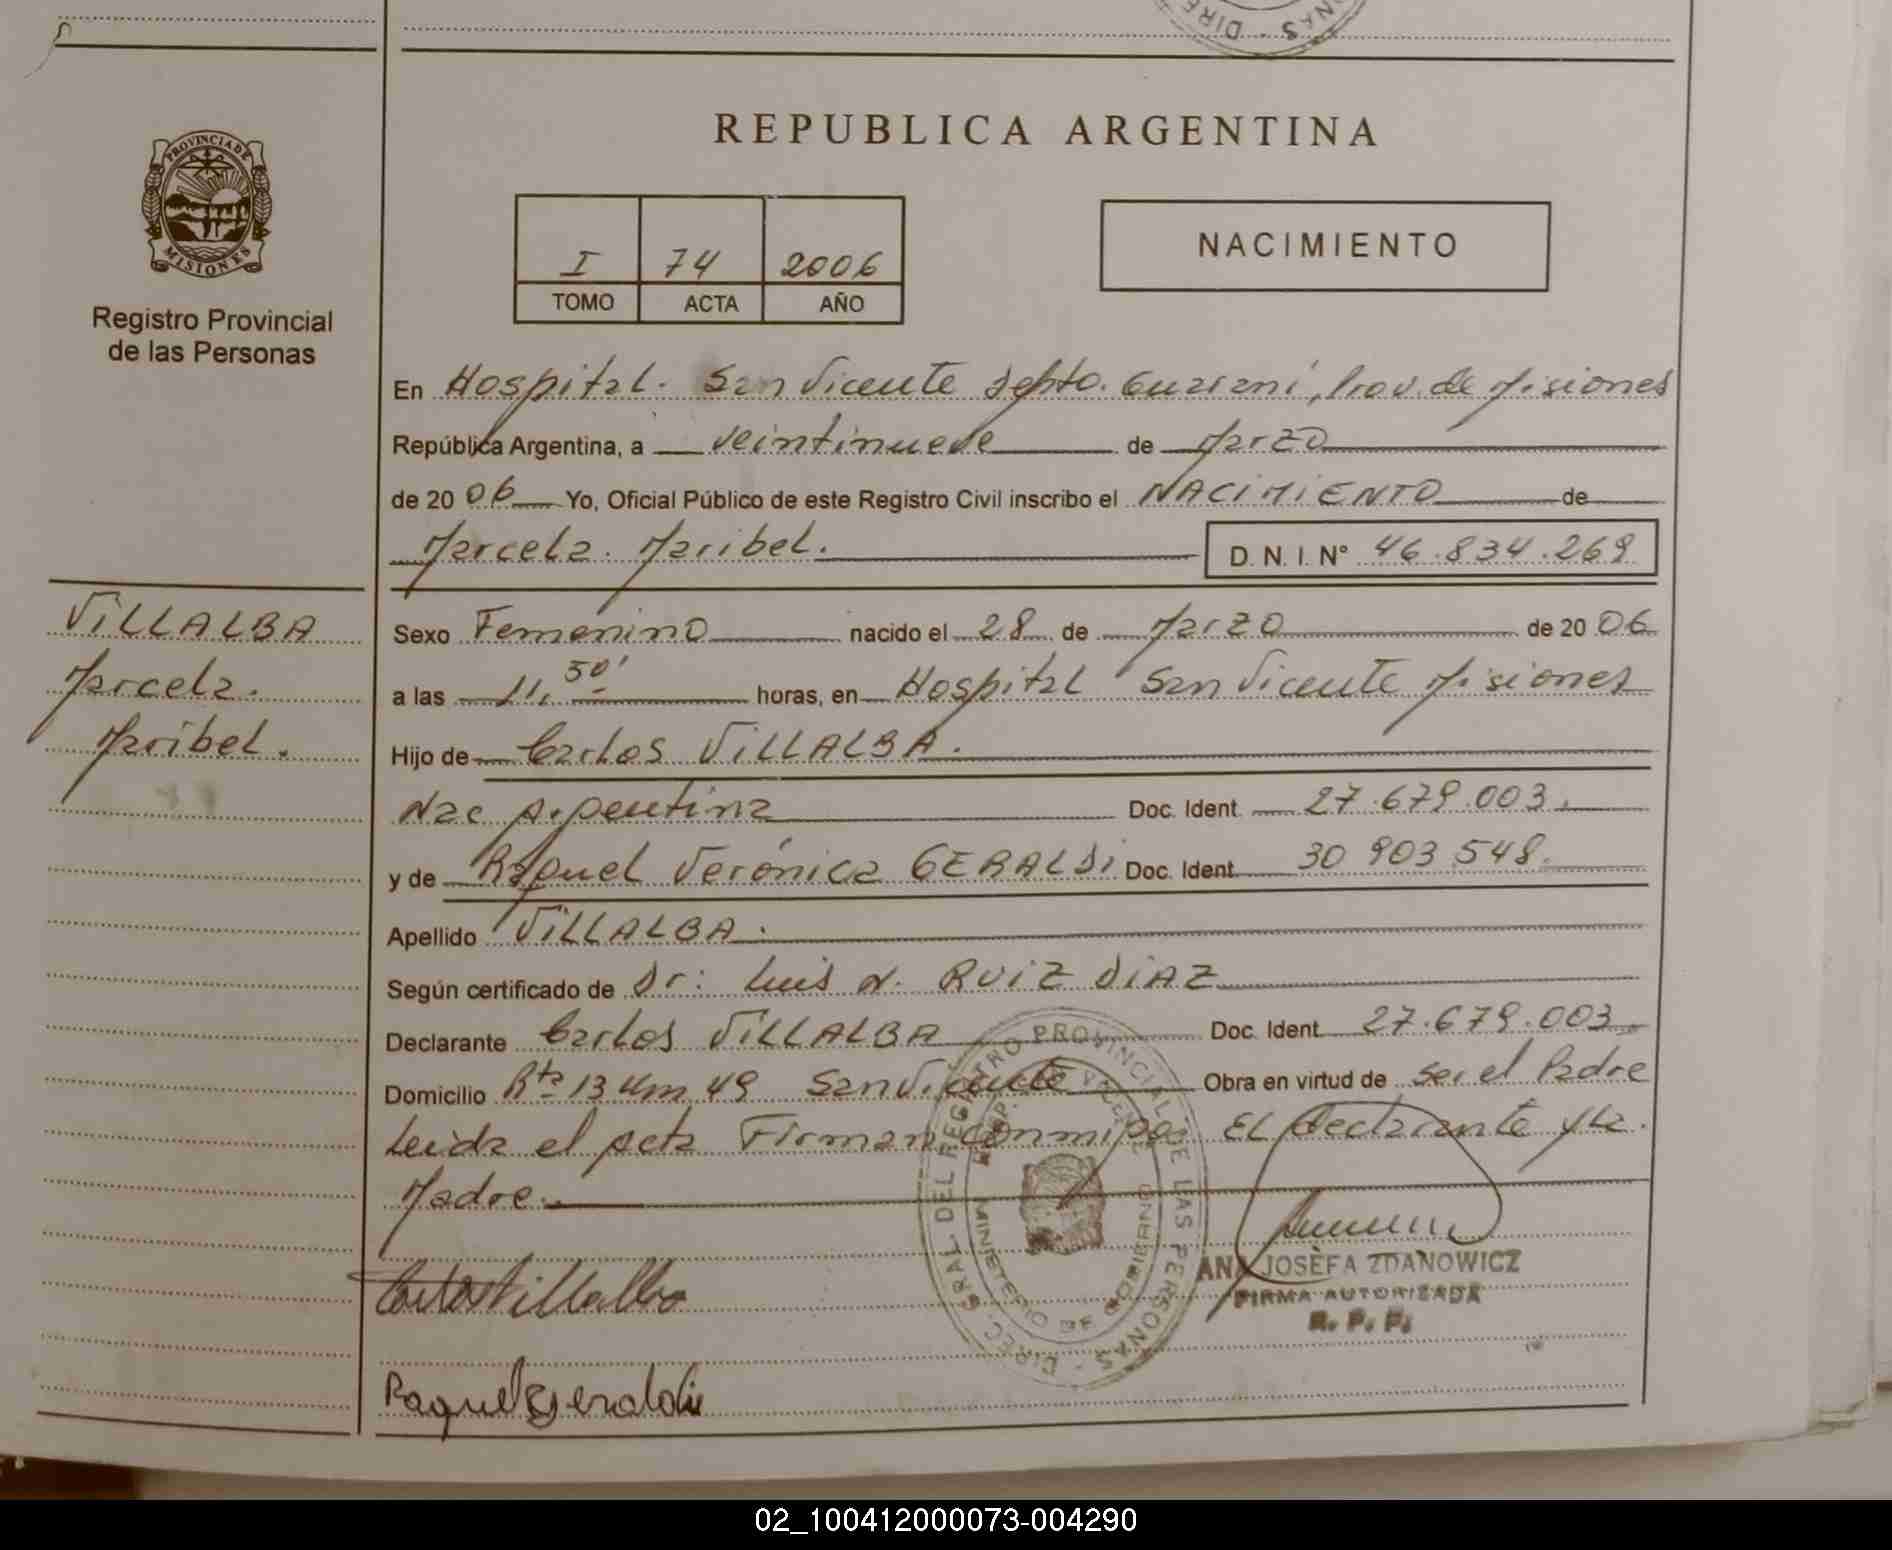 REPUBLICA ARGENTINA
PROVINCIA DE MISIONES
Registro Provincial
de las Personas
I 74 2006
TOMO ACTA AÑO
NACIMIENTO
En Hospital. San Vicente Depto. Guaraní, Prov. de Misiones
República Argentina, a veintinueve de Marzo
de 2006 Yo, Oficial Público de este Registro Civil inscribo el NACIMIENTO de
Marcela. Maribel. D. N. I. N° 46.834.269
VILLALBA
Marcela.
Maribel.
Sexo Femenino nacido el 28 de Marzo de 2006
a las 11,50' horas, en Hospital San Vicente Misiones
Hijo de Carlos VILLALBA.
Nac Argentina Doc. Ident. 27.679.003.
y de Raquel Verónica GERALDI Doc. Ident. 30 903 548.
Apellido VILLALBA.
Según certificado de Dr: Luis N. RUIZ DIAZ
Declarante Carlos VILLALBA Doc. Ident. 27.679.003
Domicilio Rta 13 Km 49 San Vicente Obra en virtud de ser el Padre
Leida el Acta Firman conmigo El declarante y la.
Madre.
DIREC. GRAL DEL REGISTRO PROVINCIAL DE LAS PERSONAS
MINISTERIO DE GOBIERNO
Carlos Villalba
ANA JOSEFA ZDANOWICZ
FIRMA AUTORIZADA
R. P. P.
Raquel Geraldi
02_100412000073-004290